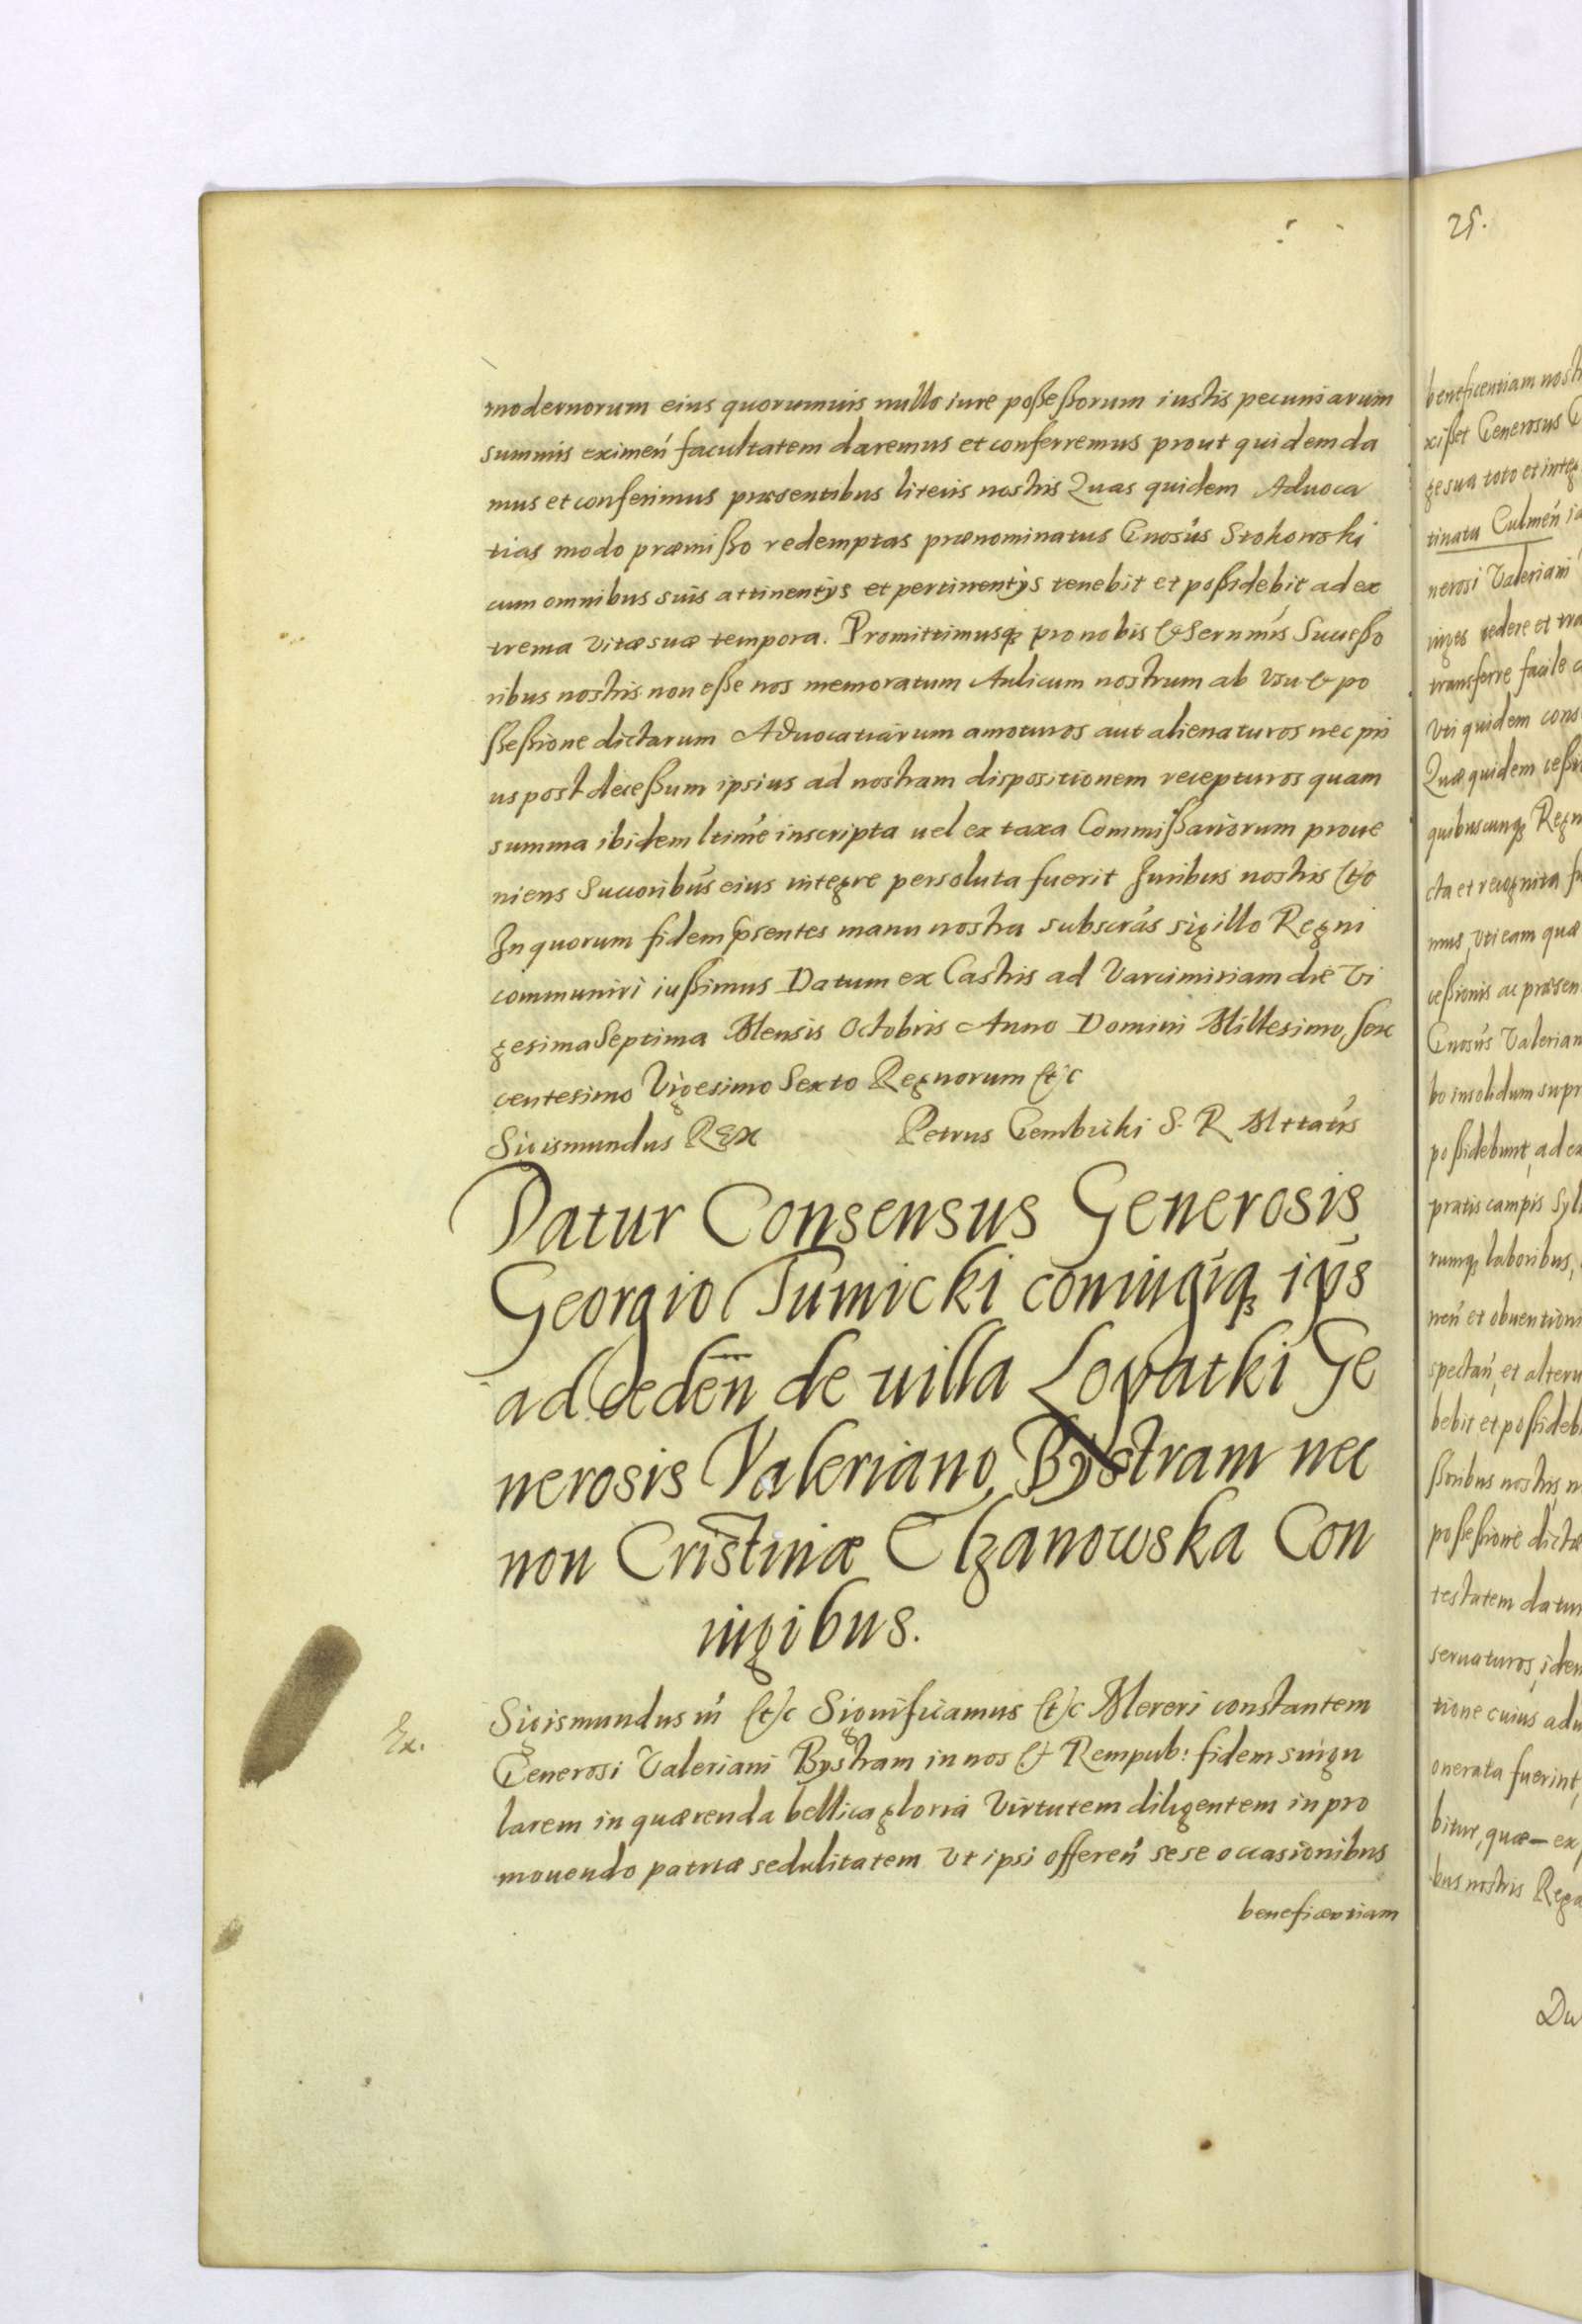 modernorum eius quorumuis nullo iure poßeßorum iustis pecuniarum
summis eximeń facultatem daremus et conferremus prout quidem da
mus et conferimus præsentibus literis nostris Quas quidem Aduoca
tias modo præmißo redemptas prænominatus Gnosús Stokowski
cum omnibus suis attinentÿs et pertinentÿs tenebit et poßidebit ad ex
trema vitæ suæ tempora. Promittimusq pro nobis & Sernmís Succeßo
ribus nostris non eße nos memoratum Aulicum nostrum ab vsu & po
ßeßione dictarum Aduocatiarum amoturos aut alienaturos nec pri
us post deceßum ipsius ad nostram dispositionem recepturos quam
summa ibidem ltimé inscripta uel ex taxa Commißariorum proue
niens Succoribús eius integre persoluta fuerit Iuribus nostris
In quorum fidem psentes manu nostra subscrás sigillo Regni
communiri iußimus Datum ex Castris ad Varcimiriam die Vi
gesima Septima Mensis Octobris Anno Domini Millesimo, sex
centesimo Vigesimo Sexto Regnorum (et)c
Sigismundus REX Petrus Gembicki S. R. Mttaús
Datur Consensus Generosis
Georgio Tumicki coniugiq ipús
ad cedeń de uilla Lopatki Ge
nerosis Valeriano Bystram nec
non Cristinæ Elzanowska Con
iugibus.
Sigismundus iii (et)c Significamus (et)c Mereri constantem
Ex.
Generosi Valeriani Bystram in nos & Rempub: fidem singu
larem in quærenda bellica gloria Virtutem diligentem in pro
mouendo patriæ sedulitatem vt ipsi offereń sese occasionibus
beneficentiam
25.
beneficentiam nost
xißet Generosus G
ge sua toto et integ
tinatu Culmeń ia
nerosi Valeriani
iuges cedere et tra
transferre facile
vti quidem cons
Quæ quidem ceßi
quibuscunq Regn
cta et recognita fu
mus, vti eam quæ
ceßionis ac præsen
Gnosús Valerian
bo insolidum supr
poßidebunt, ad ex
pratis campis Syl
rumq laboribus,
neń et obuention
spectań, et alteru
bebit et poßideb
ßoribus nostris, n
poßeßione dictæ
testatem datur
seruaturos, iden
tione cuius adu
onerata fuerint,
bitur, quæ ex
bus nostris Rega
Du